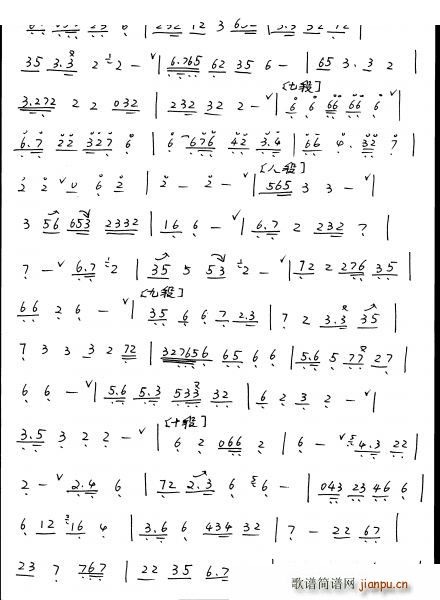 35 3.3 2 2 - | 6.765 62 35 6 - | 65 3.3 2
[七段]
3.272 2 2 032 | 232 32 2 - | 6 6 66 66 6
6.7 22 327 6 | 6 676 42 3.4 | 66 4.32 7
[八段]
2 2 0 6 2 | 2 - 2 - | 565 3 3 - |
3 56 653 2332 | 16 6 - | 6.7 2 232 7 |
7 - 6.7 2 | 35 5 53 2 - | 72 2 276 35 |
[九段]
66 2 6 - | 35 6 6 7 2.3 | 7 2 3.3 35 |
7 3 3 3 2 72 | 327656 65 6 6 | 5.6 5 77 27 |
6 6 - | 5.6 5.3 533 32 | 6 2 3 2 - |
[十段]
3.5 3 2 2 - | 6 2 066 2 | 6 - 4.3 22 |
2 - 2.4 6 | 72 2.3 6 6 - | 043 23 46 6 |
6 12 16 4 | 3.6 6 434 32 | 7 - 22 67 |
23 7 767 | 22 35 6.7
歌谱简谱网
jianpu.cn